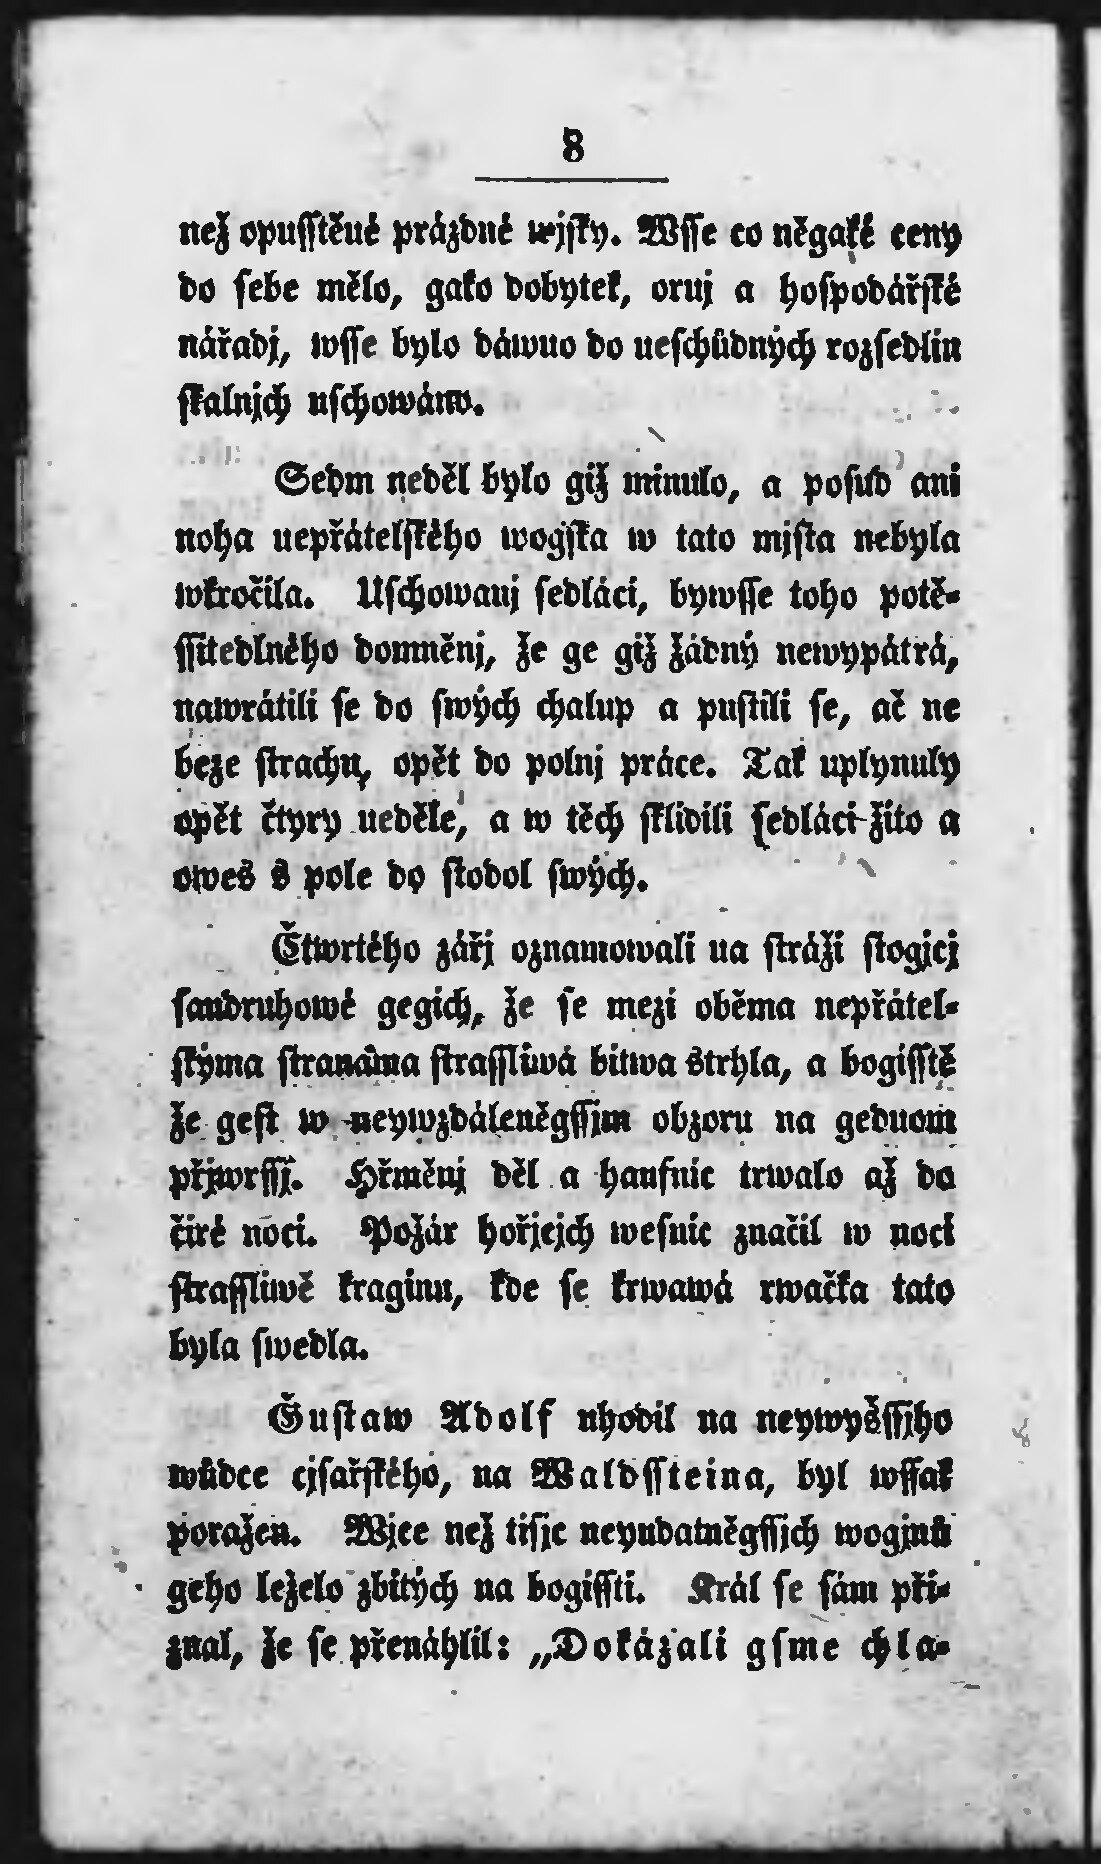 8
než opuſſtěné prázdné wjſky. Wſſe co něgaké ceny
do ſebe mělo, gako dobytek, oruj a hoſpodářſké
nářadj, wſſe bylo dáwno do neſchůdných rozſedlin
ſkalnjch uſchowáno.
Sedm neděl bylo giž minulo, a poſud ani
noha nepřátelſkého wogſka w tato mjſta nebyla
wkročila. Uſchowanj ſedláci, bywſſe toho potě-
ſſitedlného domněnj, že ge giž žádný newypátrá,
nawrátili ſe do ſwých chalup a puſtili ſe, ač ne
beze ſtrachu, opět do polnj práce. Tak uplynuly
opět čtyry neděle, a w těch ſklidili ſedláci žito a
owes s pole do ſtodol ſwých.
Čtwrtého zářj oznamowali na ſtráži ſtogjcj
ſaudruhowé gegich, že ſe mezi oběma nepřátel-
ſkýma ſtranama ſtraſſliwá bitwa strhla, a bogiſſtě
že geſt w neywzdáleněgſſjm obzoru na gednom
přjwrſſj. Hřměnj děl a haufnic trwalo až do
čiré noci. Požár hořjcjch weſnic značil w noci
ſtraſſliwě kraginu, kde ſe krwawá rwačka tato
byla ſwedla.
Guſtaw Adolf uhodil na neywyšſſjho
wůdce cjſařſkého, na Waldſſteina, byl wſſak
poražen. Wjce než tiſjc neyudatněgſſjch wogjnů
geho leželo zbitých na bogiſſti. Král ſe ſám při-
znal, že ſe přenáhlil: „Dokázali gſme chla-